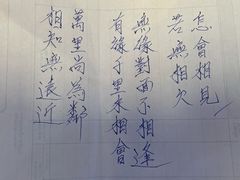 怎會相見
若無相欠
無緣對面不相逢
有緣千里來相會
萬里尚為鄰
相知無遠近